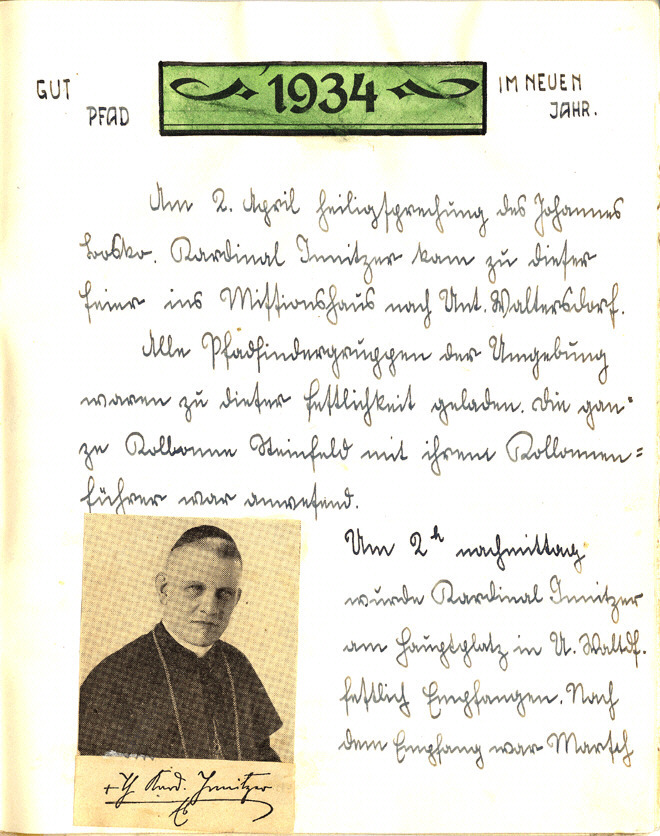 GUT PFAD
1934
IM NEUEN JAHR.
Am 2. April Heiligsprechung des Johannes
Bosko. Kardinal Innitzer kam zu dieser
Feier ins Missionshaus nach Unt. Waltersdorf.
Alle Pfadfindergruppen der Umgebung
waren zu dieser Festlichkeit geladen. Die gan-
ze Kollonne Steinfeld mit ihrem Kollonnen=
führer war anwesend.
Um 2h nachmittag
wurde Kardinal Innitzer
am Hauptplatz in U. Waltdf.
festlich Empfangen. Nach
dem Empfang war Marsch
+ Th Kard. Innitzer